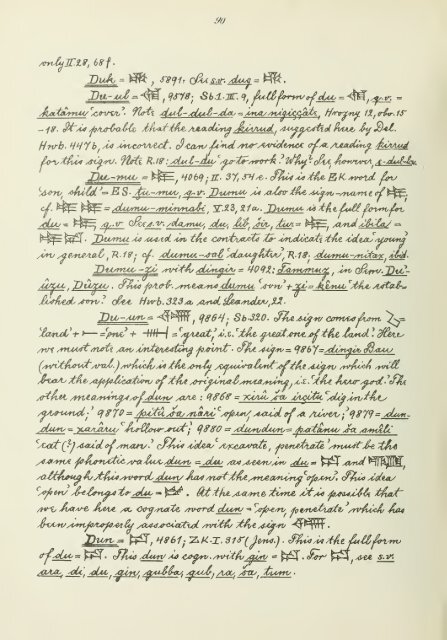 90
only II 28, 68 f.
Duk = , 5891. See s.v. dug = .
Du-ul = , 9578; Sb 1. III. 9, full form of du = , q.v. =
katâmu 'cover'. Note dub-dul-da = ina niqiççâti, Hrozny 12, obv. 15
-18. It is probable that the reading kirrud, suggested here by Del.
Hwb. 447 b, is incorrect. I can find no evidence of a reading kirrud
for this sign. Note R. 18: dub-du 'go to work'? Why? See, however, e-dub-ba.
Du-mu = , 4069; II. 37, 54 e. This is the EK word for
'son, child' = ES. tu-mu, q.v. Dumu is also the sign-name of ;
cf. = dumu-minnabi, V. 23, 21a. Dumu is the full form for
du = , q.v. See s.v. damu, du, lib, šir, tur = , and ibila =
. Dumu is used in the contracts to indicate the idea 'young'
in general, R. 18; cf. dumu-sal 'daughter', R. 18, dumu-nitax, ibid.
Dumu-zi with dingir = 4092: Tammuz, in Sem. Du'-
ûzu, Dûzu. This prob. means dumu 'son' + zi = kênu 'the estab-
lished son'? See Hwb. 323 a and Leander, 22.
Du-un = , 9864; Sb 320. The sign comes from
'land' + 'one' + = 'great', i.e. 'the great one of the land'. Here
we must note an interesting point. The sign = 9867 = dingir Bau
(without val.) which is the only equivalent of the sign which will
bear the application of the original meaning, i.e. 'the hero god'. The
other meanings of dun are: 9868 = xirû ša irçitu 'dig in the
ground;' 9870 = pitû ša nâri 'open', said of a river; 9879 = dun-
dun = xarâru 'hollow out'; 9880 = dundun = patânu ša amêli
'eat (?) said of man'. This idea 'excavate, penetrate' must be the
same phonetic value dun = du as seen in du = and ,
although this word dun has not the meaning 'open'. This idea
'open' belongs to du = . At the same time it is possible that
we have here a cognate word dun = 'open, penetrate' which has
been improperly associated with the sign .
Dun = , 4861; ZK. I. 315 (Jens.). This is the full form
of du = . This dun is cogn. with gin = . For , see s.v.
ara, di, du, gin, gubba, gub, ra, ša, tum.